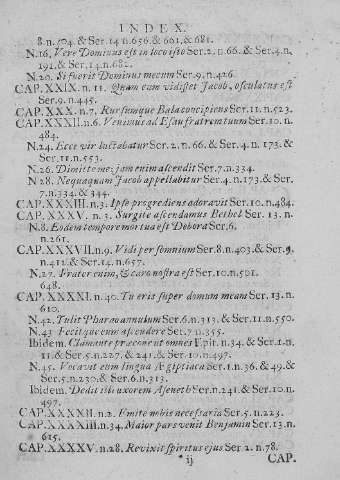 INDEX.
8.n.504. & Ser.14.n.656.& 661.& 681.
N.16. Vere Dominus est in loco isto Ser.2.n.66. & Ser.4.n.
191.& Ser.14.n.682.
N.20. Si fuerit Dominus mecum Ser.9.n.426.
CAP.XXIX. n. 11. Quam cum vidisset Jacob, osculatus est
Ser.9.n.445.
CAP.XXX. n.7. Rursumque Bala concipiens Ser.11.n.523.
CAP.XXXII.n.6. Venimus ad Esau fratrem tuum Ser.10.n.
484.
N.24. Ecce vir luctabatur Ser.2.n.66. & Ser.4.n.173.&
Ser.11.n.553.
N.26. Dimitte me; jam enim ascendit Ser.7.n.334.
N 28. Nequaquam Jacob appellabitur Ser.4.n.173.& Ser.
7.n.334.& 344.
CAP.XXXIII.n.3. Ipse progrediens adoravit Ser.10.n.484.
CAP.XXXV. n.3. Surgite ascendamus Bethel Ser. 13. n.
N.8. Eodem tempore mortua est Debora Ser.6.
n.261.
CAP.XXXVII.n.9. Vidi per somnium Ser.8.n.403.& Ser.9.
n.412.& Ser.14.n.657.
N.27. Frater enim, & caro nostra est Ser.10.n.501.
648.
CAP.XXXXI.n.40. Tu eris super domum meam Ser.13.n.
610.
N.42. Tulit Pharao annulum Ser.6.n.313. & Ser.11.n.550.
N.43 Fecitque eum ascendere Ser.7.n.355.
Ibidem. Clamante præcone ut omnes Epit.n.34.& Ser.1.n.
11.& Ser.5.n.227.& 241.& Ser.10.n.497.
N.45. Vocavit eum lingua Ægiptiaca Ser.1.n.36. & 49.&
Ser.5.n.230.& Ser.6.n.313.
Ibidem. Dedit illi uxorem Aseneth Ser.n.241.& Ser.10.n.
497.
CAP.XXXXII.n.2. Emite nobis necessaria Ser.5.n.223.
CAP.XXXXIII.n.34. Maior pars venit Benjamin Ser.13.n.
615.
CAP.XXXXV.n.28. Revixit spiritus ejus Ser 2.n.78.
* ij CAP.